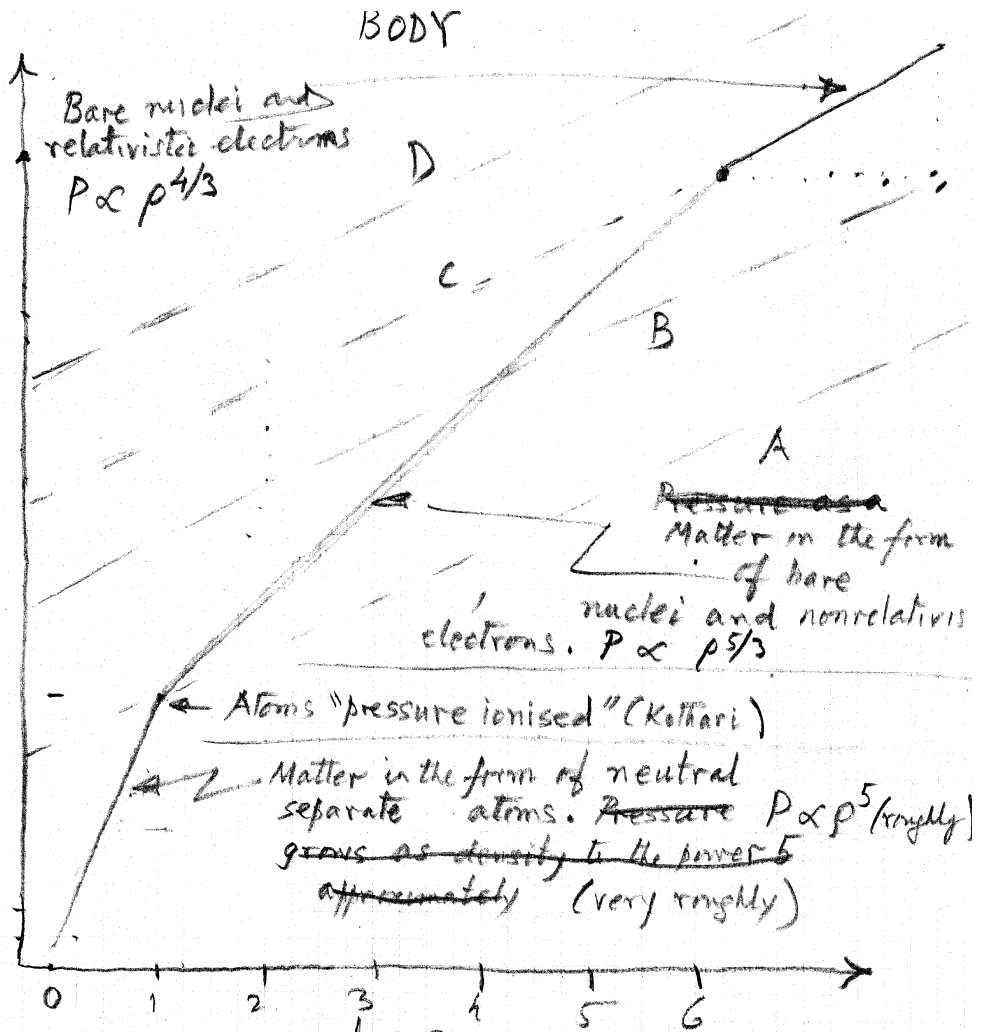 BODY
Bare nuclei and
relativistic electrons
P ∝ ρ4/3
D
C
B
A
Pressure as a
Matter in the form
of bare
nuclei and nonrelativis
electrons. P ∝ ρ5/3
Atoms "pressure ionised" (Kothari)
Matter in the form of neutral
separate atoms. Pressure P ∝ ρ5 (roughly)
grows as density to the power 5
approximately (very roughly)
0 1 2 3 4 5 6